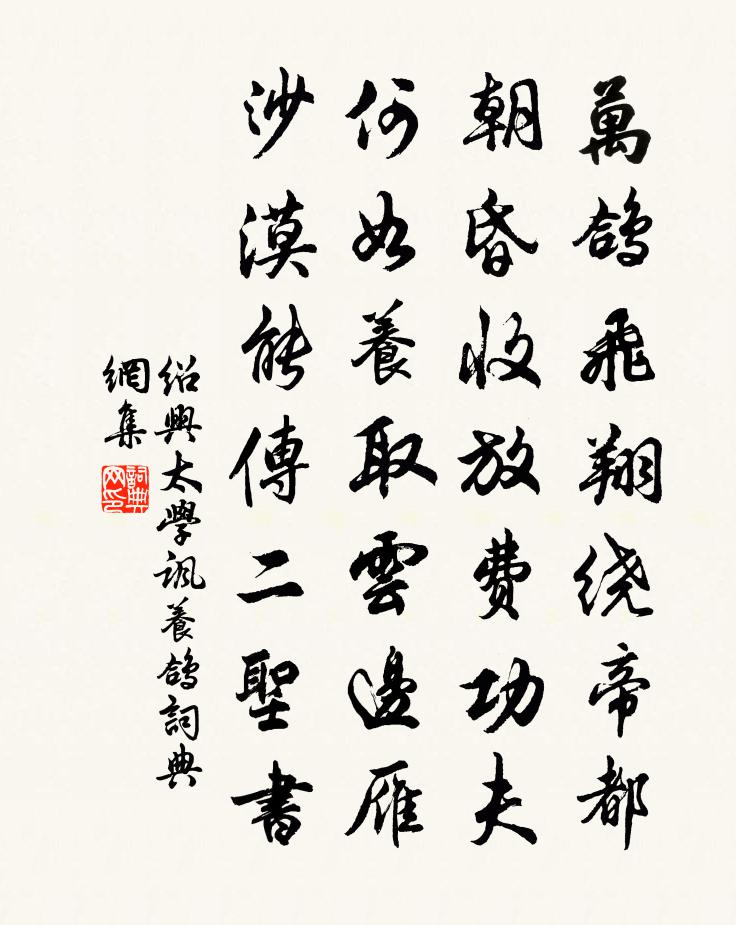 萬鴿飛翔绕帝都
朝昏收放費功夫
何如養取雲邊雁
沙漠能傳二聖書
绍興太學諷養鴿詞典
網集
詞典
网印